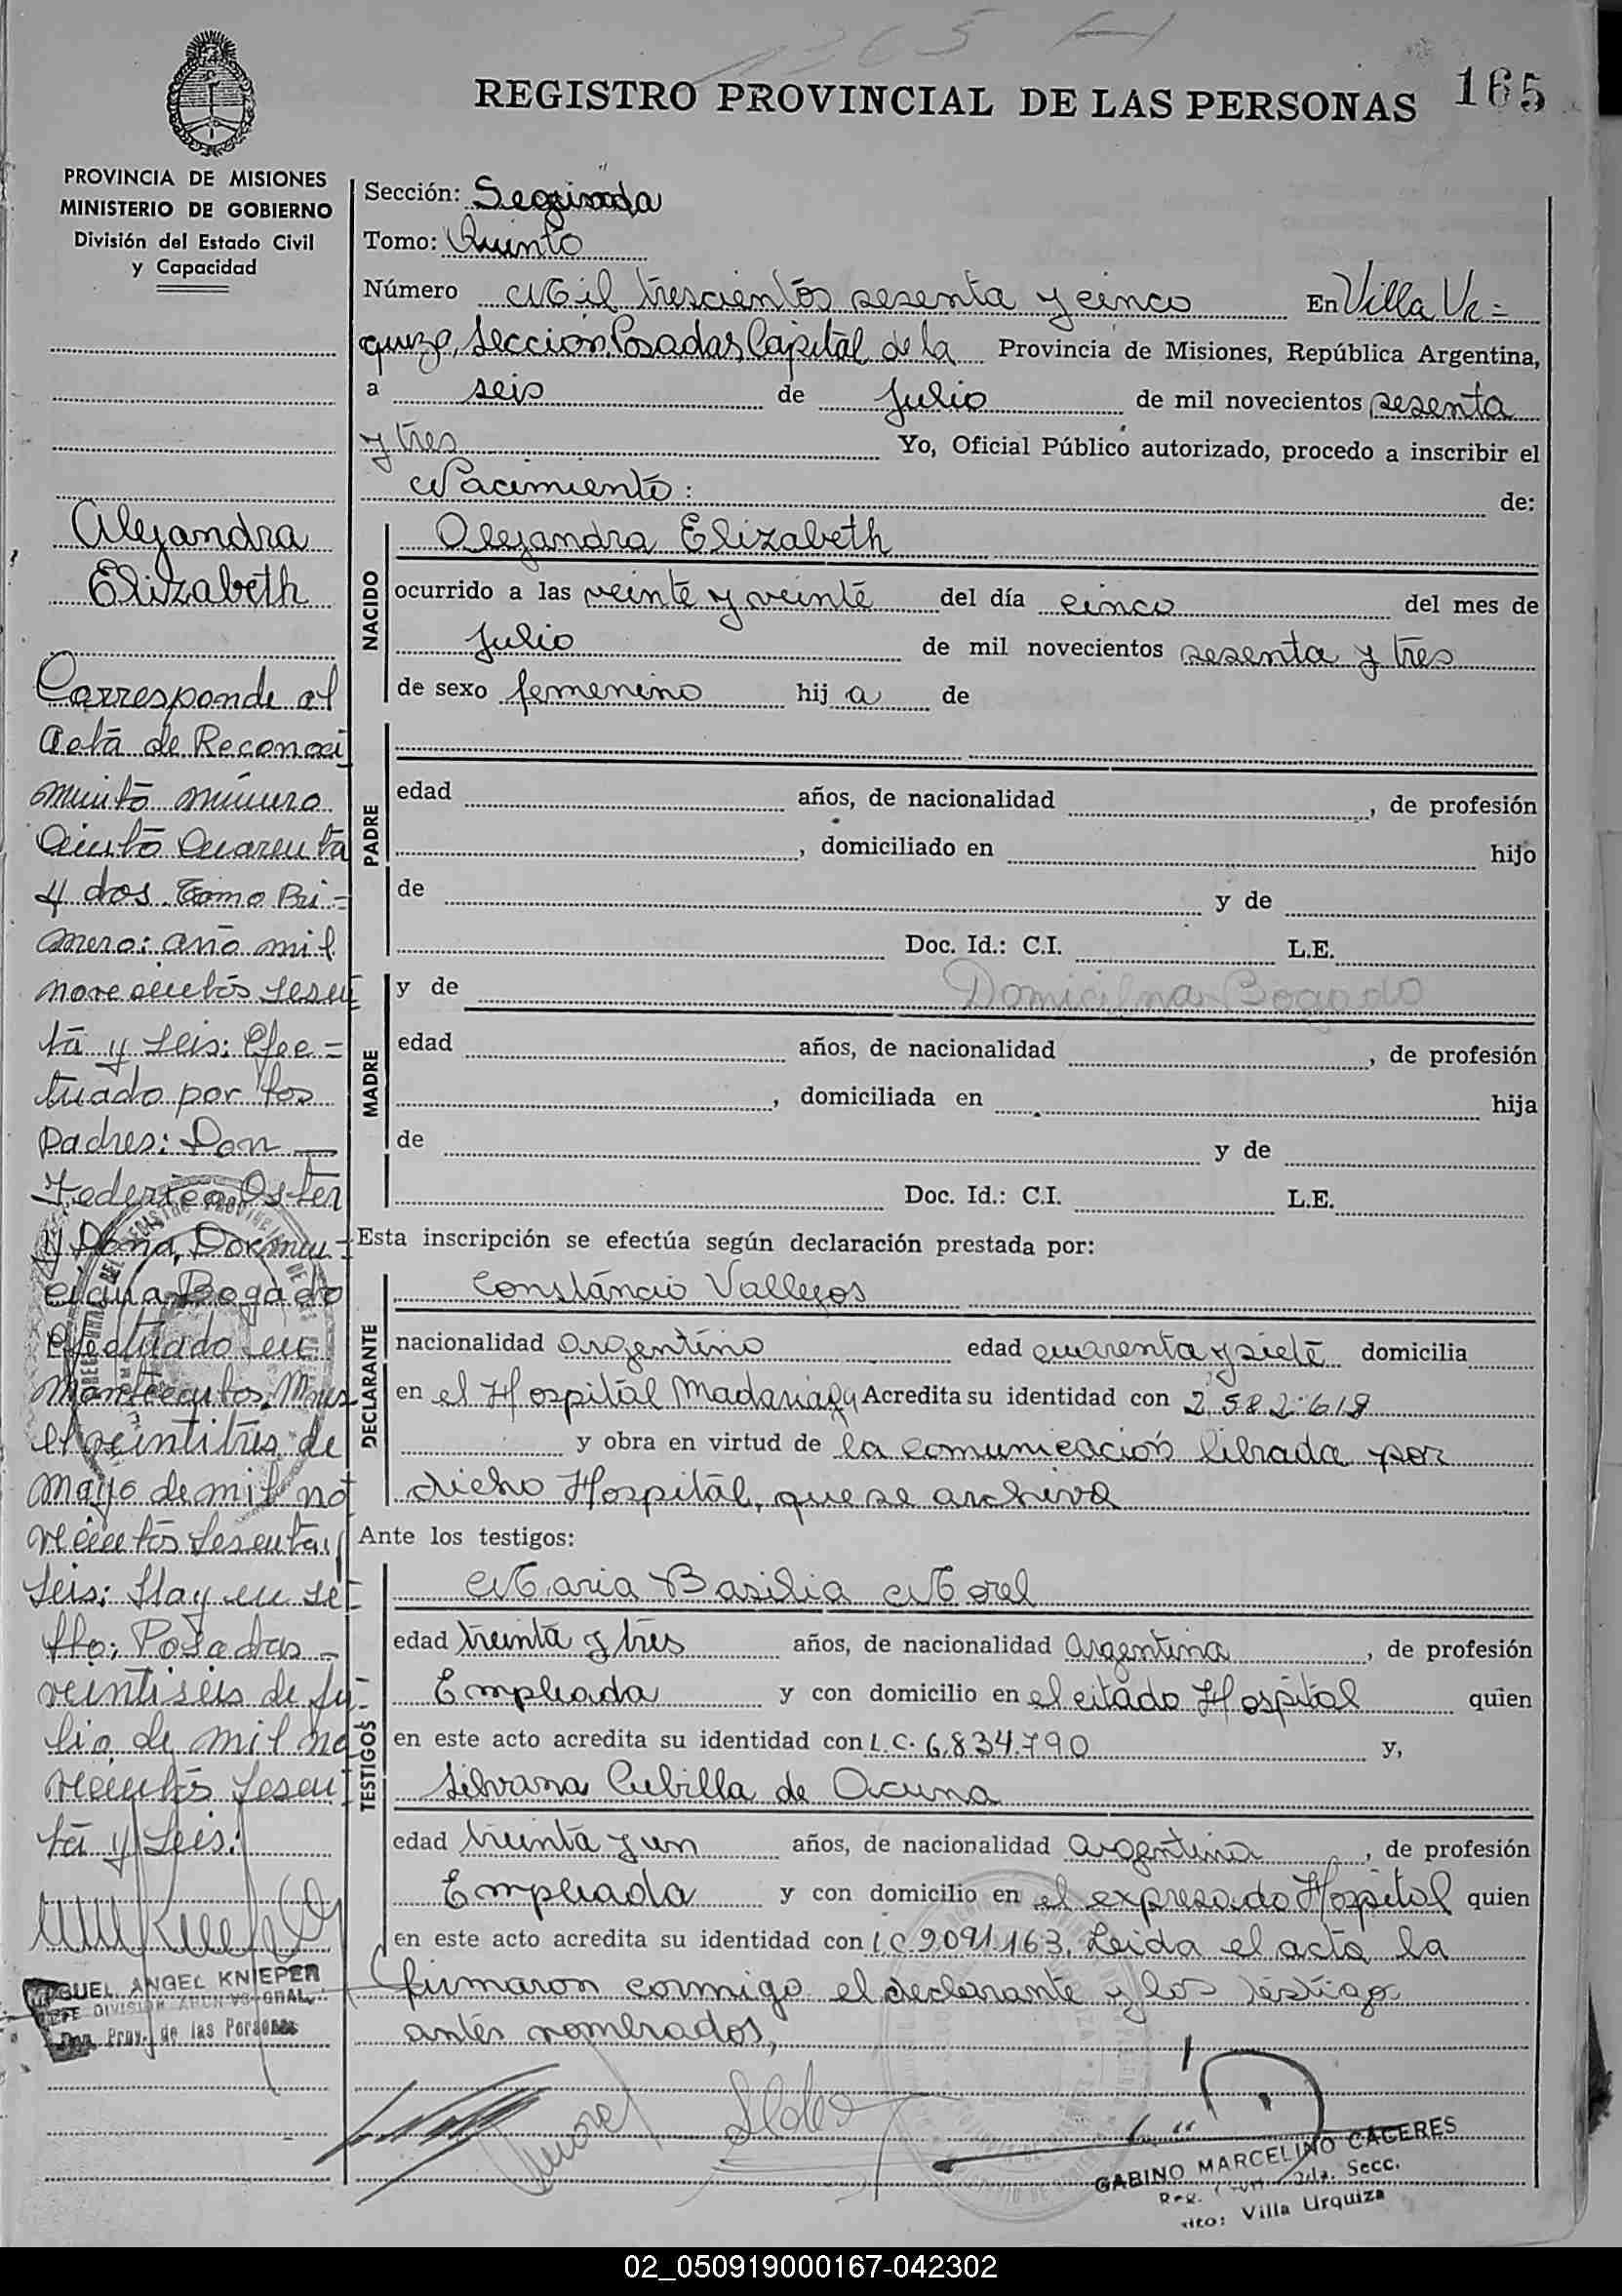 165
REGISTRO PROVINCIAL DE LAS PERSONAS
PROVINCIA DE MISIONES
MINISTERIO DE GOBIERNO
División del Estado Civil
y Capacidad
Alejandra
Elizabeth
Corresponde al
Acta de Reconoci
miento número
Ciento Cuarenta
y dos. Tomo Pri=
mero: año mil
novecientos sesen
ta y seis: Efec=
tuado por los
Padres: Don
Federico Osten
y Doña
Bogado
efectuado en
el veintitrés de
mayo de mil no
vecientos sesenta y
seis: Hay un se=
llo: Posadas
veintiseis de Ju=
lio de mil no
vecientos sesen
ta y seis:
MIGUEL ANGEL KNIEPER
JEFE DIVISION ARCH. GRAL.
Prov. de las Personas
Sección: Segunda
Tomo: Quinto
Número Mil trescientos sesenta y cinco En Villa Ur=
quiza, Sección Posadas, Capital de la Provincia de Misiones, República Argentina,
a seis de Julio de mil novecientos sesenta
y tres Yo, Oficial Público autorizado, procedo a inscribir el
Nacimiento: de:
NACIDO
Alejandra Elizabeth
ocurrido a las veinte y veinte del día cinco del mes de
Julio de mil novecientos sesenta y tres
de sexo femenino hij a de
PADRE
edad años, de nacionalidad , de profesión
, domiciliado en hijo
de y de
Doc. Id.: C.I. L.E.
MADRE
y de Domicilna Bogado
edad años, de nacionalidad , de profesión
, domiciliada en hija
de y de
Doc. Id.: C.I. L.E.
Esta inscripción se efectúa según declaración prestada por:
DECLARANTE
Constáncio Vallejos
nacionalidad argentino edad cuarenta y siete domicilia
en el Hospital Madariaga Acredita su identidad con 2.582.618
y obra en virtud de la comunicación librada por
dicho Hospital, que se archiva
Ante los testigos:
TESTIGOS
Maria Basilia Morel
edad treinta y tres años, de nacionalidad Argentina , de profesión
Empleada y con domicilio en el citado Hospital quien
en este acto acredita su identidad con L.C. 6.834.790 y,
Silvana Cubilla de Acuna
edad treinta y un años, de nacionalidad argentina , de profesión
Empleada y con domicilio en el expresado Hospital quien
en este acto acredita su identidad con LC 9.091.163. Leida el acta la
firmaron conmigo el declarante y los testigos
antes nombrados,
GABINO MARCELINO CACERES
2da. Secc.
Villa Urquiza
02_050919000167-042302